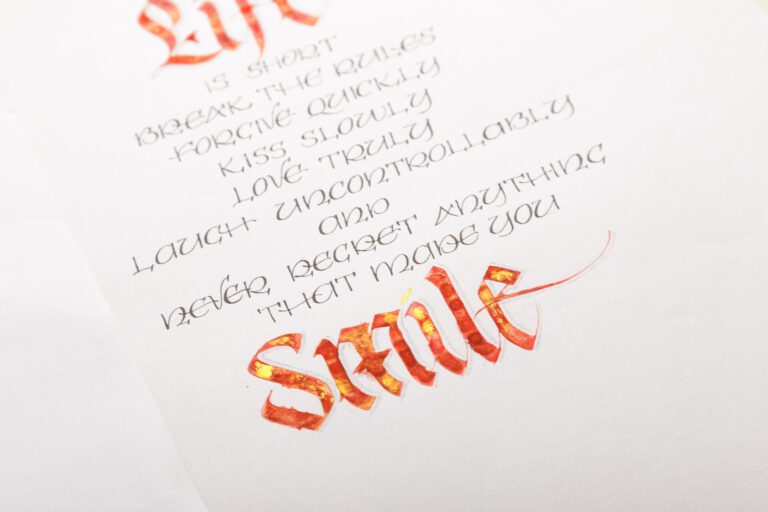 Life
IS SHORT
BREAK THE RULES
FORGIVE QUICKLY
KISS SLOWLY
LOVE TRULY
LAUGH UNCONTROLLABLY
AND
NEVER REGRET ANYTHING
THAT MADE YOU
Smile